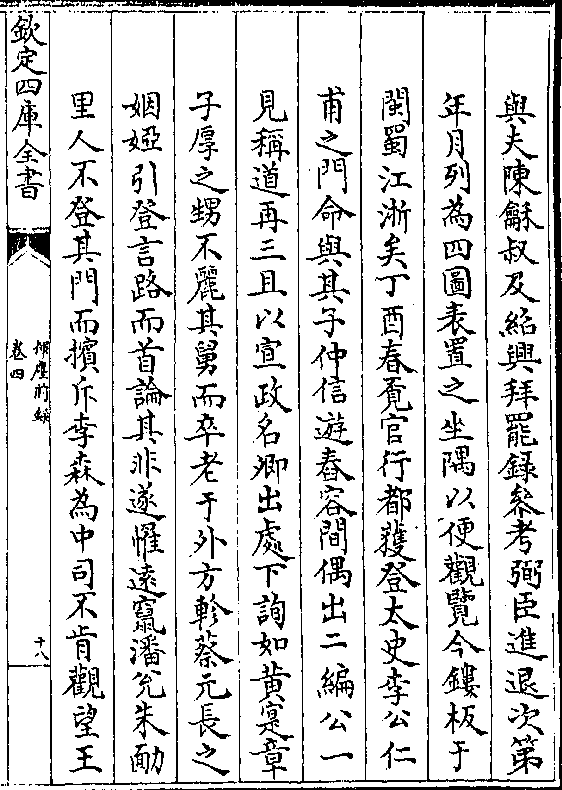 與夫陳龢叔及紹興拜罷録叅考弼臣進退次第
年月列為四圖表置之坐隅以便觀覽今鏤板于
閩蜀江淅矣丁酉春覔官行都獲登太史李公仁
甫之門命與其子仲信遊舂容間偶出二編公一
見稱道再三且以宣政名卿出處下詢如黄寔章
子厚之甥不麗其舅而卒老于外方軫蔡元長之
姻婭引登言路而首論其非遂罹遠竄潘兊朱勔
里人不登其門而擯斥李森為中司不肯觀望王
欽定四庫全書
揮麈前録
卷四
十八